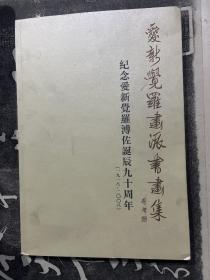 愛新覺羅畫派書畫集
紀念愛新覺羅溥佐誕辰九十周年
(一九一八—二〇〇八)